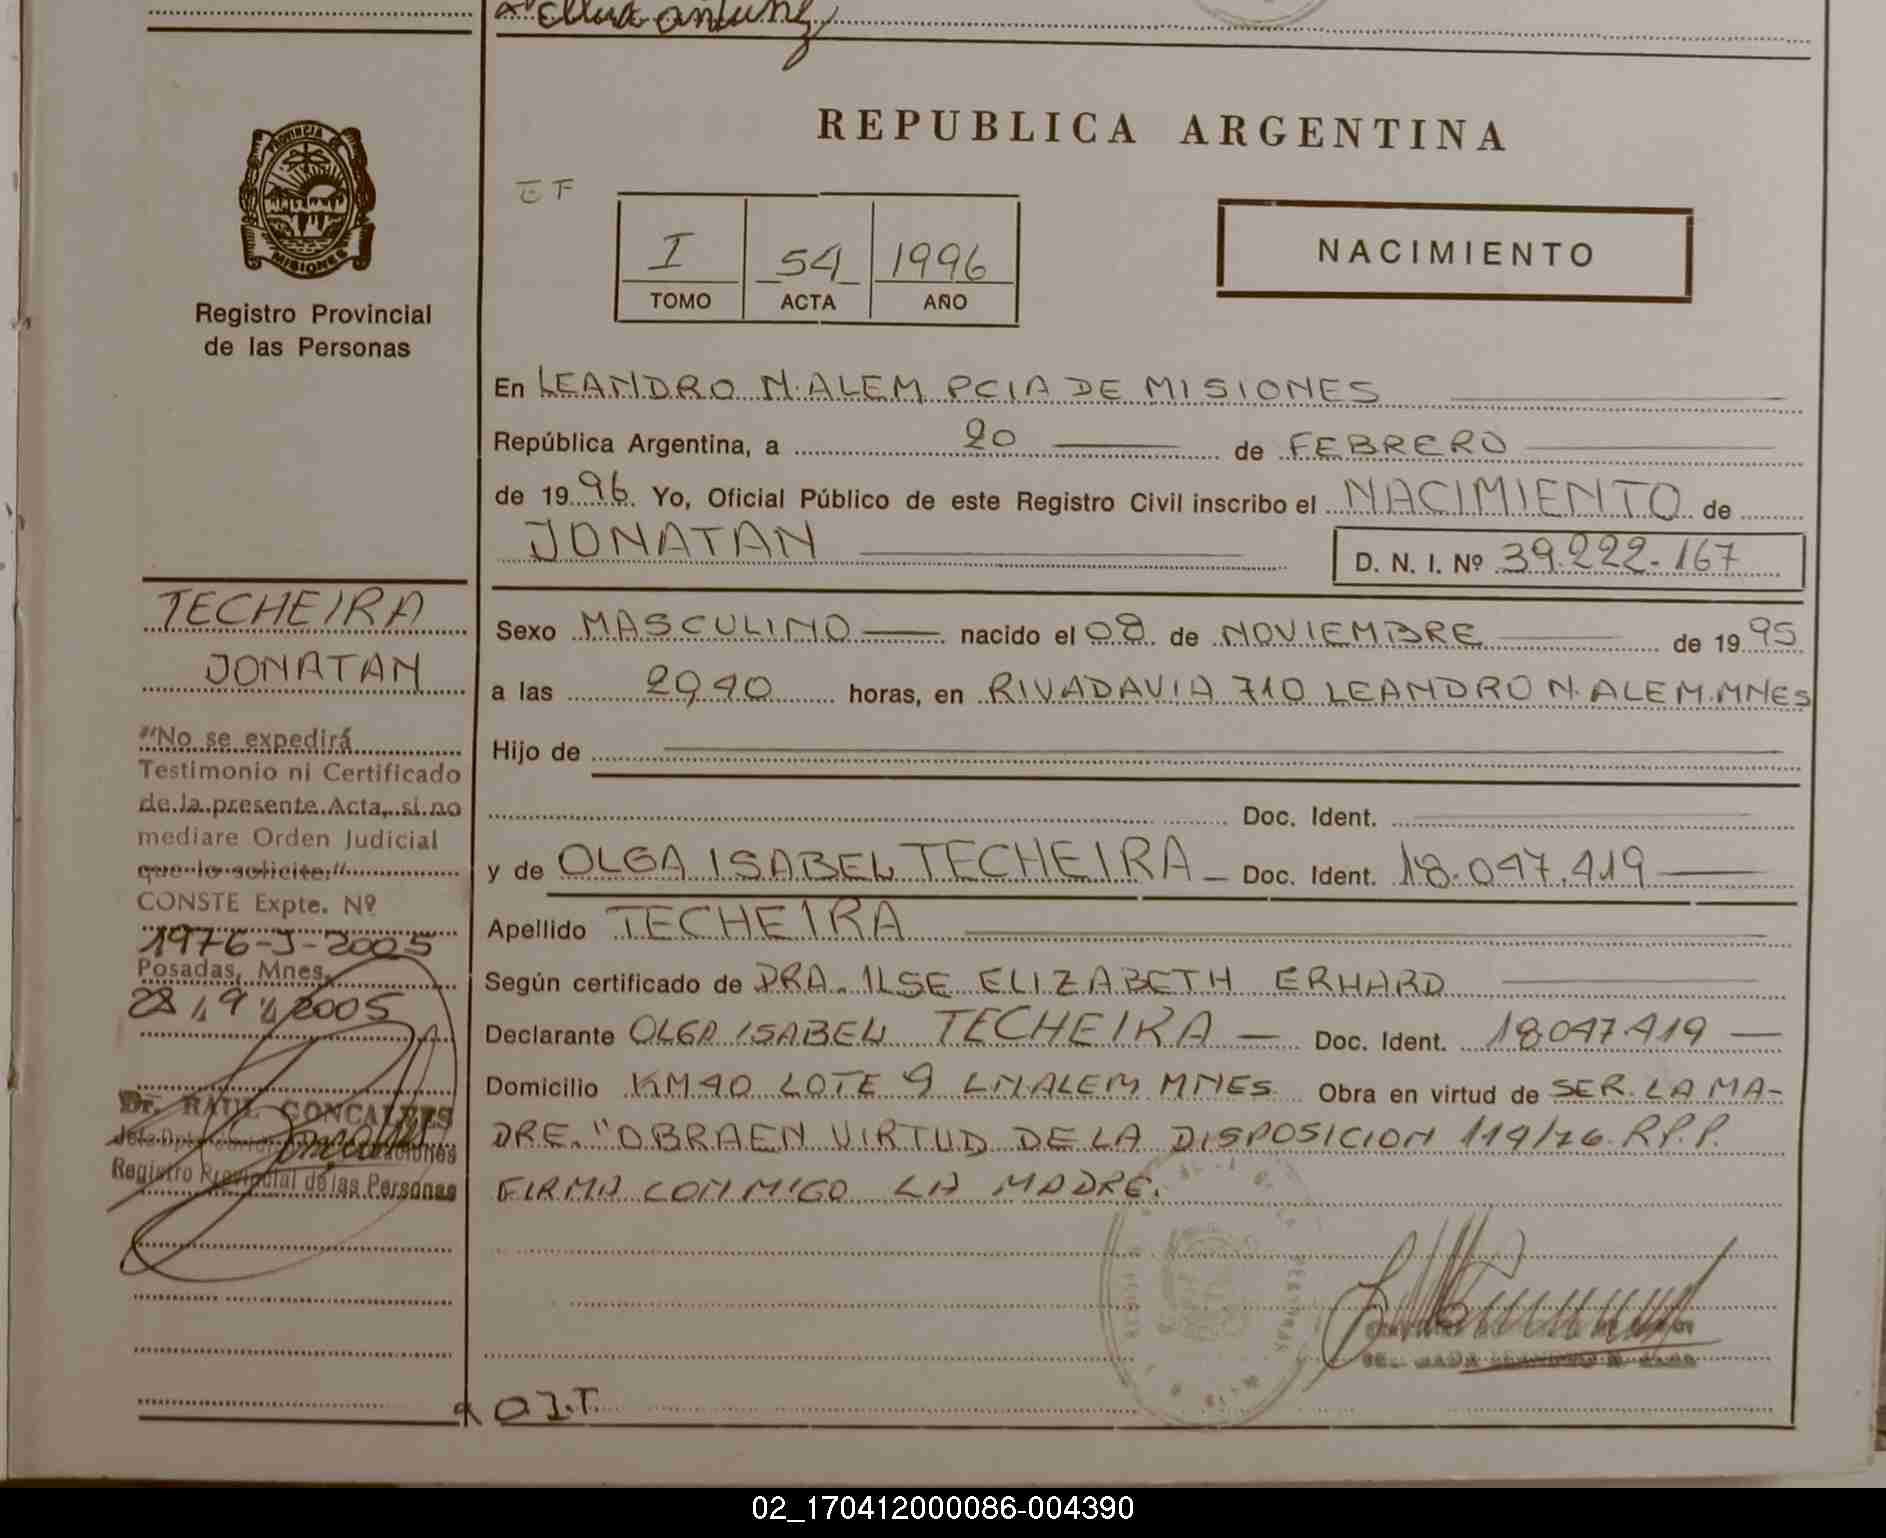 REPUBLICA ARGENTINA
PROVINCIA DE
MISIONES
Registro Provincial
de las Personas
I 54 1996
TOMO ACTA AÑO
NACIMIENTO
En LEANDRO N. ALEM PCIA DE MISIONES
República Argentina, a 20 de FEBRERO
de 1996. Yo, Oficial Público de este Registro Civil inscribo el NACIMIENTO de
JONATAN D. N. I. Nº 39.222.167
TECHEIRA
JONATAN
"No se expedirá
Testimonio ni Certificado
de la presente Acta, si no
mediare Orden Judicial
que lo solicite."
CONSTE Expte. Nº
1976-J-2005
Posadas, Mnes.
28 9 2005
Dr. RAUL GONCALVES
Registro Provincial de las Personas
Sexo MASCULINO nacido el 08 de NOVIEMBRE de 1995
a las horas, en RIVADAVIA 710 LEANDRO N. ALEM. MNES
Hijo de
Doc. Ident.
y de OLGA ISABEL TECHEIRA Doc. Ident. 18.047.419
Apellido TECHEIRA
Según certificado de DRA. ILSE ELIZABETH ERHARD
Declarante OLGA ISABEL TECHEIRA Doc. Ident. 18.047.419
Domicilio KM 40 LOTE 9 L N ALEM MNES. Obra en virtud de SER LA MA-
DRE. "OBRA EN VIRTUD DE LA DISPOSICION 114/76. R.P.P.
FIRMA CONMIGO LA MADRE.
O.I.T.
02_170412000086-004390